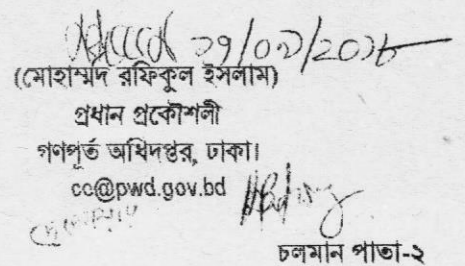 (মোহাম্মদ রফিকুল ইসলাম)
প্রধান প্রকৌশলী
গণপূর্ত অধিদপ্তর, ঢাকা।
cc@pwd.gov.bd
চলমান পাতা-২